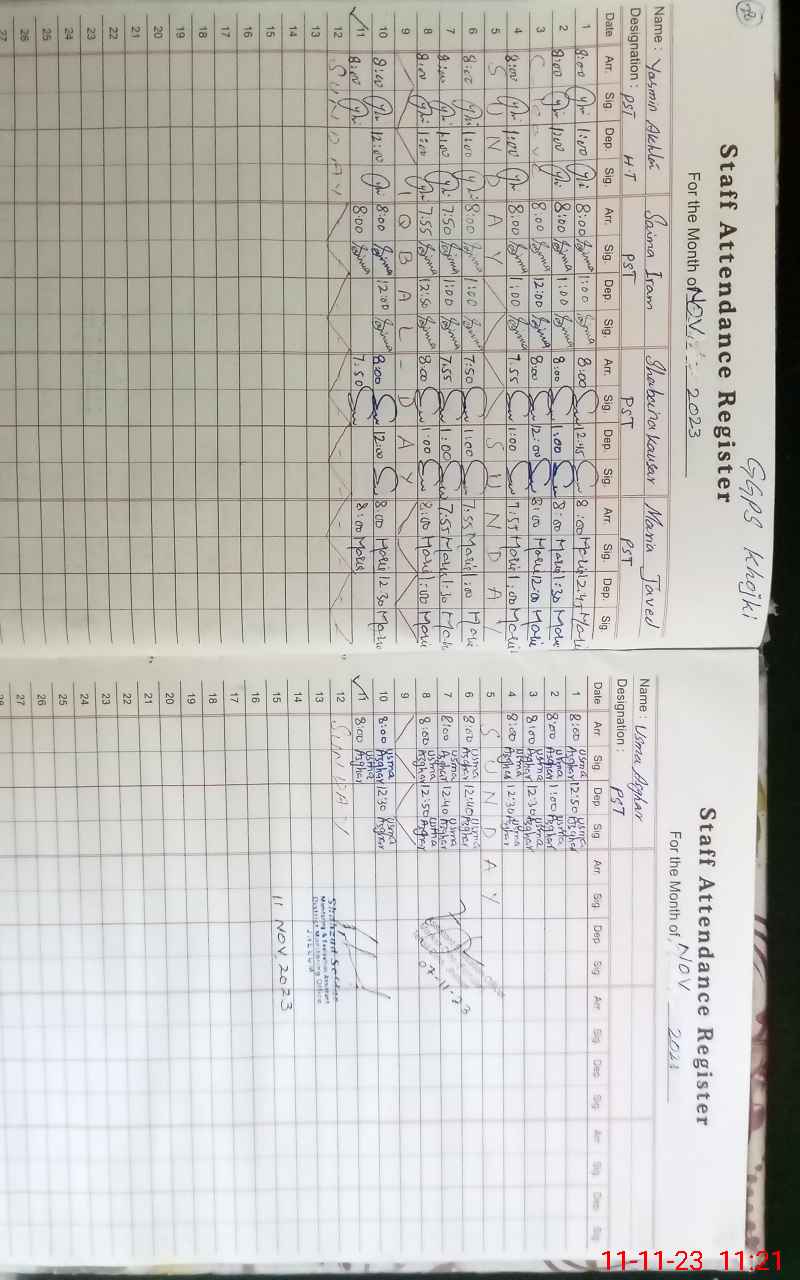 GGPS Khojki
Staff Attendance Register
For the Month of NOV. 2023
Name: Yasmin Akhtar Saima Iram Shabana Kausar Maria Javed
Designation: PST H.T PST PST PST
Date Arr. Sig. Dep. Sig. Arr. Sig. Dep. Sig. Arr. Sig. Dep. Sig. Arr. Sig. Dep. Sig
1 8:00 1:00 8:00 Saima 1:00 Saima 8:00 12:45 8:00 Maria 12:45 Maria
2 8:00 1:00 8:00 Saima 1:00 Saima 8:00 1:00 8:00 Maria 1:30 Maria
3 8:00 Saima 12:00 Saima 8:00 12:00 8:00 Maria 12:00 Maria
4 8:00 1:00 8:00 Saima 1:00 Saima 7:55 1:00 7:55 Maria 1:00 Maria
5 S U N D A Y S U N D A Y
6 8:00 1:00 8:00 Saima 1:00 Saima 7:50 1:00 7:55 Maria 1:00 Maria
7 8:00 1:00 7:50 Saima 1:00 Saima 7:55 1:00 7:55 Maria 1:30 Maria
8 8:00 1:00 7:55 Saima 12:50 Saima 8:00 1:00 8:00 Maria 1:00 Maria
9 I Q B A L - D A Y
10 8:00 12:00 8:00 Saima 12:00 Saima 8:00 12:00 8:00 Maria 12:30 Maria
11 8:00 8:00 Saima 7:50 8:00 Maria
12 S U N D A Y
13
14
15
16
17
18
19
20
21
22
23
24
25
26
27
Staff Attendance Register
For the Month of NOV 2023
Name: Usma Asghar
Designation: PST
Date Arr Sig Dep Sig Arr. Sig Dep Sig Arr Sig Dep Sig Arr Sig Dep Sig
1 8:00 Usma Asghar 12:50 Usma Asghar
2 8:00 Usma Asghar 1:00 Usma Asghar
3 8:00 Usma Asghar 12:30 Usma Asghar
4 8:00 Usma Asghar 12:30 Usma Asghar
5 S U N D A Y
6 8:00 Usma Asghar 12:40 Usma Asghar
7 8:00 Usma Asghar 12:40 Usma Asghar
8 8:00 Usma Asghar 12:50 Usma Asghar
9
10 8:00 Usma Asghar 12:30 Usma Asghar
11 8:00 Usma Asghar
12 SUNDAY
13
14
15
16
17
18
19
20
21
22
23
24
25
26
27
28
Monitoring & Evaluation Assistant
District Monitoring Office
11 NOV 2023
11-11-23 11:21